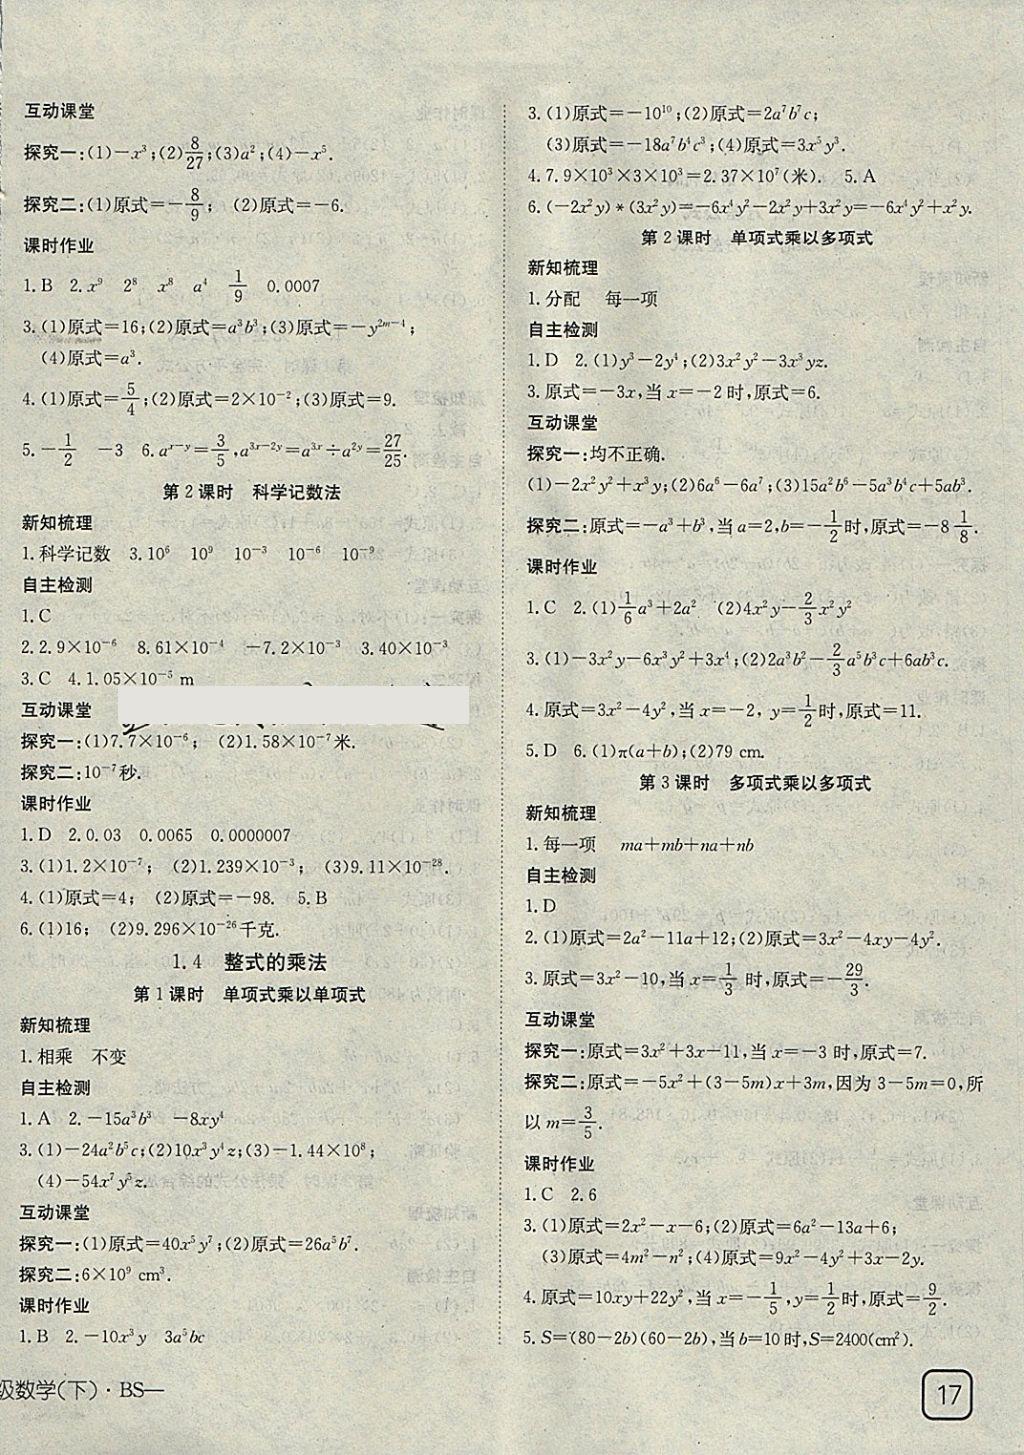 互动课堂
探究一:(1)-x³;(2)8/27;(3)a²;(4)-x⁵.
探究二:(1)原式=-8/9; (2)原式=-6.
课时作业
1.B 2.x⁹ 2⁸ x⁸ a⁴ 1/9 0.0007
3.(1)原式=16;(2)原式=a³b³;(3)原式=-y²ᵐ⁻⁴;
(4)原式=a³.
4.(1)原式=5/4;(2)原式=2×10⁻²;(3)原式=9.
5.-1/2 -3 6.aˣ⁻ʸ=3/5,a³ˣ⁻²ʸ=a³ˣ÷a²ʸ=27/25.
第2课时 科学记数法
新知梳理
1.科学记数 3.10⁶ 10⁹ 10⁻³ 10⁻⁶ 10⁻⁹
自主检测
1.C
2.2.9×10⁻⁶ 8.61×10⁻⁴ -7.2×10⁻³ 3.40×10⁻³
3.C 4.1.05×10⁻⁵ m
互动课堂
探究一:(1)7.7×10⁻⁶; (2)1.58×10⁻⁷米.
探究二:10⁻⁷秒.
课时作业
1.D 2.0.03 0.0065 0.0000007
3.(1)1.2×10⁻⁷; (2)1.239×10⁻³; (3)9.11×10⁻²⁸.
4.(1)原式=4; (2)原式=-98. 5.B
6.(1)16; (2)9.296×10⁻²⁶千克.
1.4 整式的乘法
第1课时 单项式乘以单项式
新知梳理
1.相乘 不变
自主检测
1.A 2.-15a³b³ -8xy⁴
3.(1)-24a²b⁵c;(2)10x³y⁴z;(3)-1.44×10⁸;
(4)-54x⁷y⁵z.
互动课堂
探究一:(1)原式=40x⁵y⁷;(2)原式=26a⁵b⁷.
探究二:6×10⁹ cm³.
课时作业
1.B 2.-10x³y 3a⁵bc
级数学(下)·BS—
3.(1)原式=-10¹⁰;(2)原式=2a⁷b⁷c;
(3)原式=-18a⁷b⁴c³;(4)原式=3x⁵y³.
4.7.9×10³×3×10³=2.37×10⁷(米). 5.A
6.(-2x²y)*(3x²y)=-6x⁴y²-2x²y+3x²y=-6x⁴y²+x²y.
第2课时 单项式乘以多项式
新知梳理
1.分配 每一项
自主检测
1.D 2.(1)y³-2y⁴;(2)3x²y²-3x³yz.
3.原式=-3x,当x=-2时,原式=6.
互动课堂
探究一:均不正确.
(1)-2x²y²+x³y;(2)6a⁶-6a⁷;(3)15a²b⁶-5a³b⁴c+5ab³.
探究二:原式=-a³+b³,当a=2,b=-1/2时,原式=-8 1/8.
课时作业
1.C 2.(1)1/6a³+2a² (2)4x²y-2/3x²y²
3.(1)-3x²y-6x³y²+3x⁴;(2)2a³b²-2/3a⁵b³c+6ab³c.
4.原式=3x²-4y²,当x=-2, y=1/2时,原式=11.
5.D 6.(1)π(a+b);(2)79 cm.
第3课时 多项式乘以多项式
新知梳理
1.每一项 ma+mb+na+nb
自主检测
1.D
2.(1)原式=2a²-11a+12;(2)原式=3x²-4xy-4y².
3.原式=3x²-10,当x=1/3 时,原式=-29/3.
互动课堂
探究一:原式=3x²+3x-11,当x=-3时,原式=7.
探究二:原式=-5x²+(3-5m)x+3m,因为3-5m=0,所
以m=3/5.
课时作业
1.C 2.6
3.(1)原式=2x²-x-6;(2)原式=6a²-13a+6;
(3)原式=4m²-n²;(4)原式=9x²-4y²+3x-2y.
4.原式=10xy+22y²,当x=-1/5,y=1/2时,原式=9/2.
5.S=(80-2b)(60-2b),当b=10时,S=2400(cm²).
17